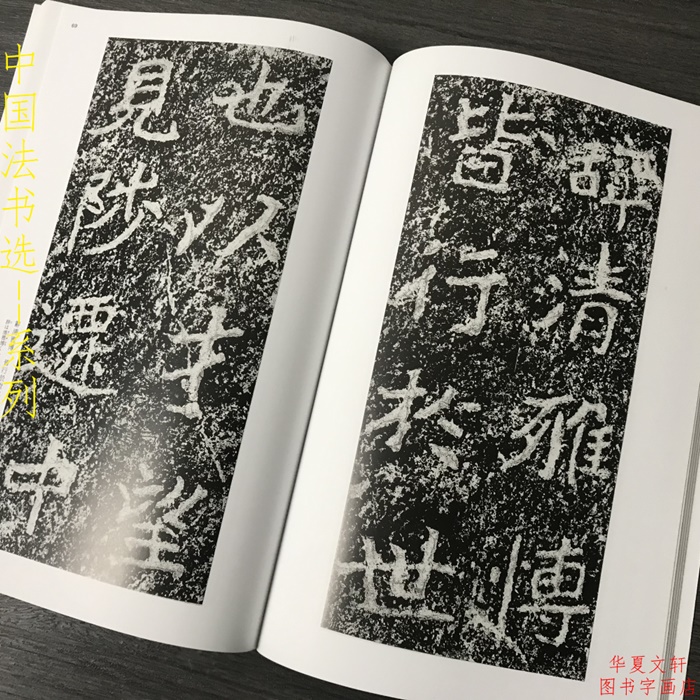 中国法书选--系列
辞清雅愽
皆行於世
也以才望
見陟遷中
华夏文轩
图书字画店